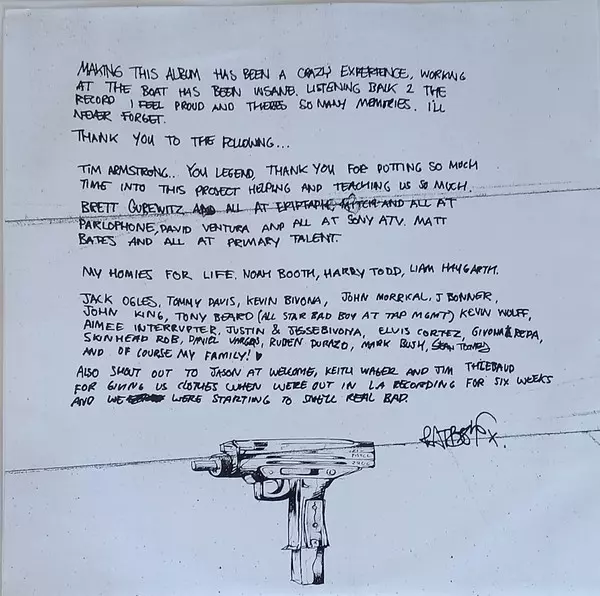 MAKING THIS ALBUM HAS BEEN A CRAZY EXPERIENCE, WORKING
AT THE BOAT HAS BEEN INSANE. LISTENING BACK 2 THE
RECORD I FEEL PROUD AND THERES SO MANY MEMORIES. I'LL
NEVER FORGET.
THANK YOU TO THE FOLLOWING...
TIM ARMSTRONG.. YOU LEGEND, THANK YOU FOR PUTTING SO MUCH
TIME INTO THIS PROJECT HELPING AND TEACHING US SO MUCH.
BRETT GUREWITZ AND ALL AT EPITAPH, MITCH AND ALL AT
PARLOPHONE, DAVID VENTURA AND ALL AT SONY ATV. MATT
BATES AND ALL AT PRIMARY TALENT.
MY HOMIES FOR LIFE. NOAH BOOTH, HARRY TODD, LIAM HAYGARTH.
JACK OGLES, TOMMY DAVIS, KEVIN BIVONA, JOHN MORRICAL, J BONNER,
JOHN KING, TONY BEARD (ALL STAR BAD BOY AT TAP MGMT) KEVIN WOLFF,
AIMEE INTERRUPTER, JUSTIN & JESSE BIVONA, ELVIS CORTEZ, GIVONA & REDA,
SKINHEAD ROB, DANIEL VARGAS, RUBEN DURAZO, MARK BUSH, SEAN
AND OF COURSE MY FAMILY! ♥
ALSO SHOUT OUT TO JASON AT WELCOME, KEITH WAGER AND JIM THIEBAUD
FOR GIVING US CLOTHES WHEN WE WERE OUT IN LA RECORDING FOR SIX WEEKS
AND WE WERE STARTING TO SMELL REAL BAD.
RATBOY X.